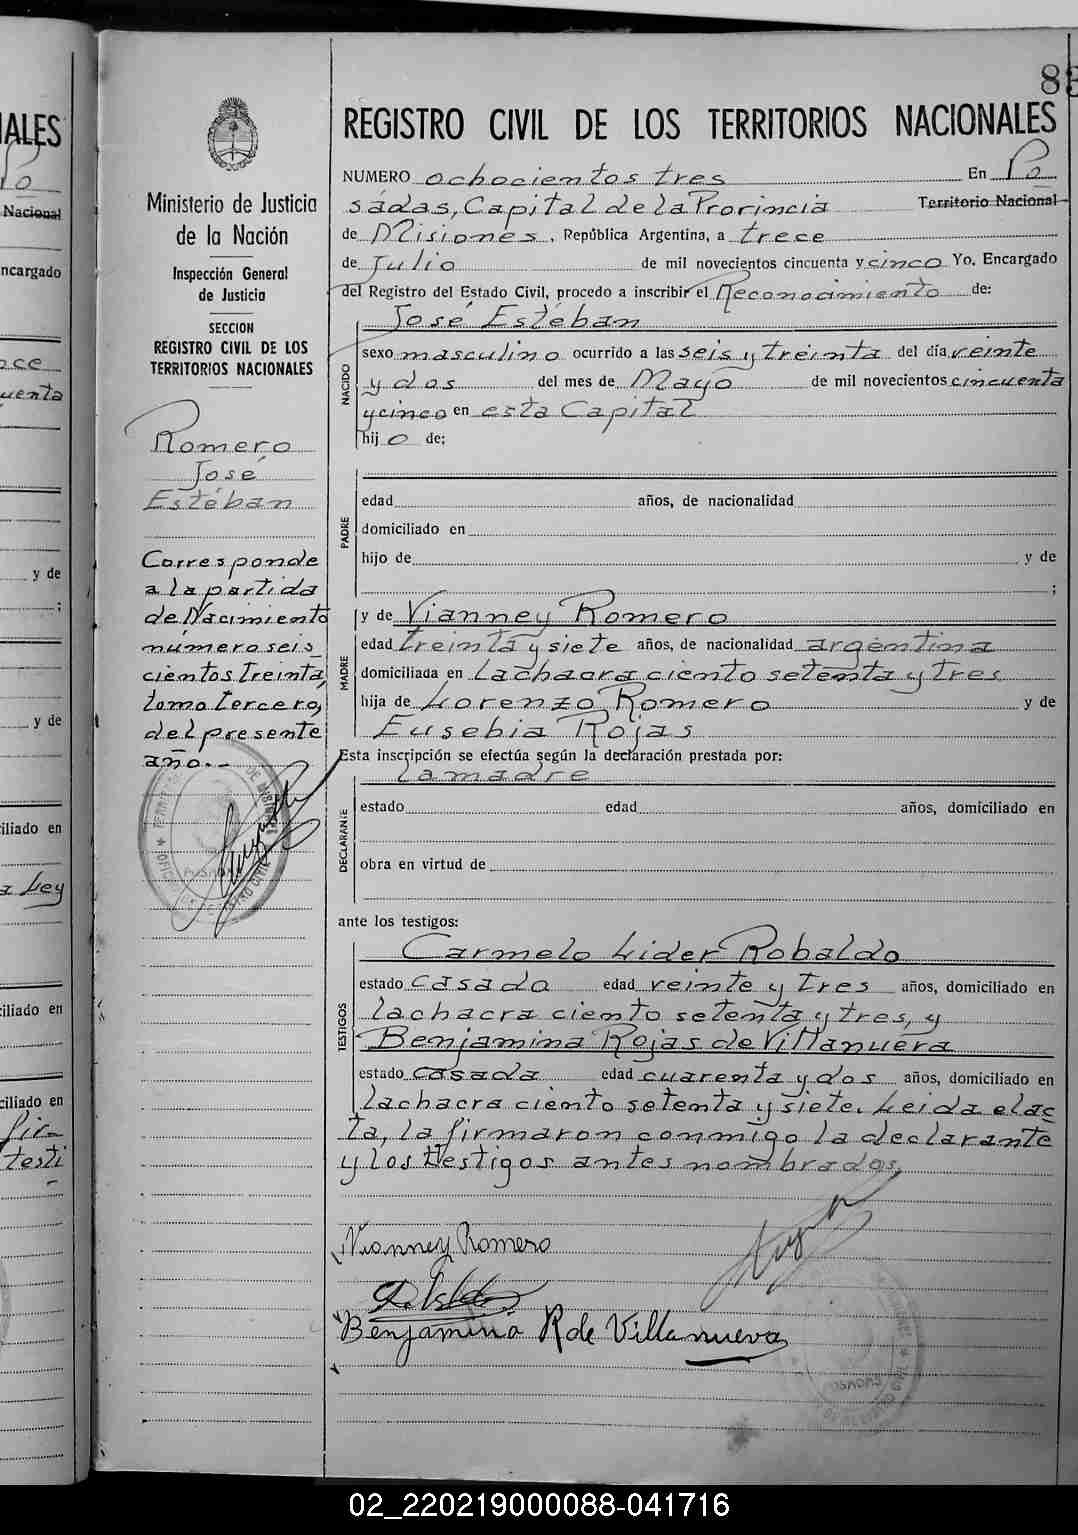 83
REGISTRO CIVIL DE LOS TERRITORIOS NACIONALES
NUMERO ochocientos tres En Po
sádas, Capital de la Provincia Territorio Nacional
de Misiones, República Argentina, a trece
de Julio de mil novecientos cincuenta y cinco Yo, Encargado
del Registro del Estado Civil, procedo a inscribir el Reconocimiento de:
NACIDO
José Estéban
sexo masculino ocurrido a las seis y treinta del día veinte
y dos del mes de Mayo de mil novecientos cincuenta
y cinco en esta Capital
hij o de:
PADRE
edad años, de nacionalidad
domiciliado en
hijo de y de
;
MADRE
y de Vianney Romero
edad treinta y siete años, de nacionalidad argentina
domiciliada en la chacra ciento setenta y tres
hija de Lorenzo Romero y de
Eusebia Rojas
Esta inscripción se efectúa según la declaración prestada por:
DECLARANTE
la madre
estado edad años, domiciliado en
obra en virtud de
ante los testigos:
TESTIGOS
Carmelo Lider Robaldo
estado casado edad veinte y tres años, domiciliado en
la chacra ciento setenta y tres, y
Benjamina Rojas de Villanueva
estado casada edad cuarenta y dos años, domiciliado en
la chacra ciento setenta y siete. Leida el ac
ta, la firmaron conmigo la declarante
y los testigos antes nombrados,
Vianney Romero
Benjamina R de Villanueva
POSADAS
Ministerio de Justicia
de la Nación
Inspección General
de Justicia
SECCION
REGISTRO CIVIL DE LOS
TERRITORIOS NACIONALES
Romero
José
Estéban
Corresponde
a la partida
de Nacimiento
número seis
cientos treinta,
tomo tercero,
del presente
año.-
DE MISIONES
POSADAS
IALES
Po
Nacional
ncargado
nce
uenta
y de
;
y de
iliado en
a Ley
iliado en
ciliado en
fir-
testi
02_220219000088-041716